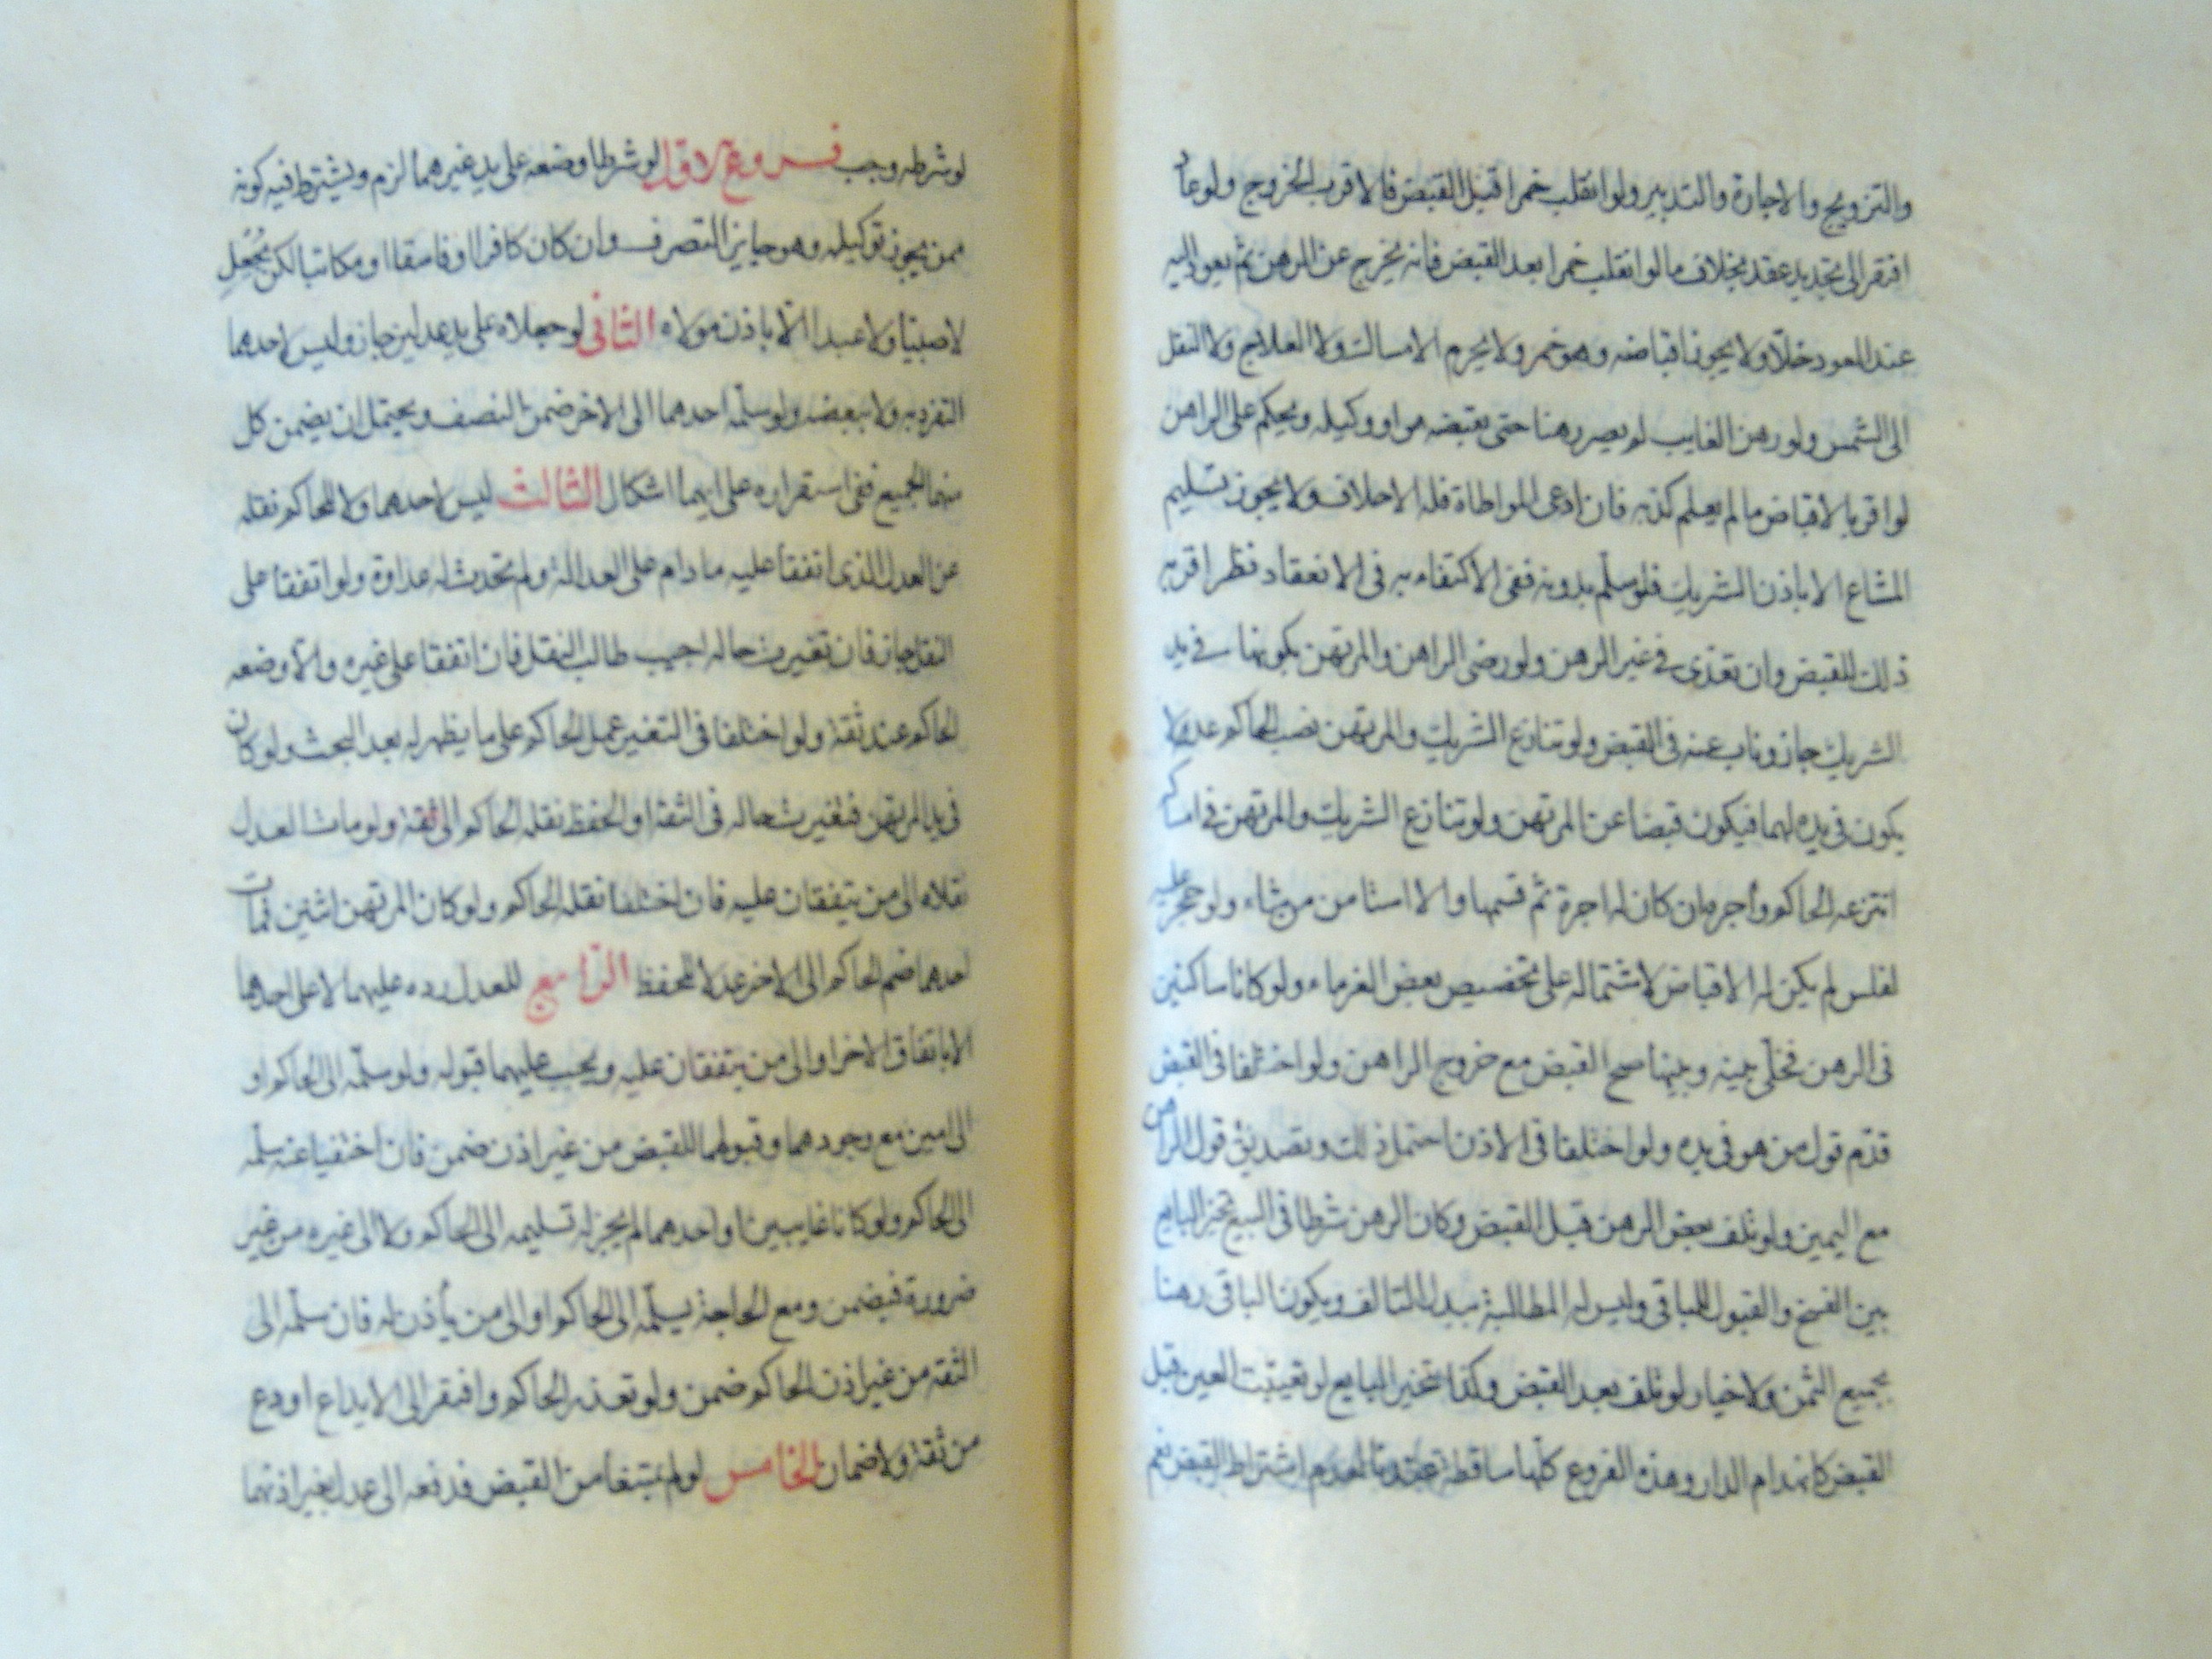 والتزويج والاجارة والتدبير ولو انقلب خمرا قبل القبض فالاقرب الخروج ولو عاد
افتقر الى تجديد عقد بخلاف ما لو انقلب خمرا بعد القبض فانه يخرج عن الرهن ثم يعود اليه
عند العود خلا ولا يجوز اقباضه وهو خمر ولا يحرم الامساك ولا العلاج ولا النقل
الى الشمس ولو رهن الغايب لم يصر رهنا حتى يقبضه هو او وكيله ويحكم على الراهن
لو اقر بالاقباض ما لم يعلم كذبه فان ادعى المواطاة فله الاحلاف ولا يجوز تسليم
المشاع الا باذن الشريك فلو سلم بدونه ففى الاكتفاء به فى الانعقاد نظر اقربه
ذلك للقبض وان تعدى فى غير الرهن ولو رضى الراهن والمرتهن بكونها فى يد
الشريك جاز وناب عنه فى القبض ولو تنازع الشريك والمرتهن نصب الحاكم عدلا
يكون فى يده لهما فيكون قبضا عن المرتهن ولو تنازع الشريك والمرتهن فى امساكه
انتزعه الحاكم وأجره ان كان له اجرة ثم قسمها والا استا من من شاء ولو حجر عليه
لفلس لم يكن له الاقباض لاشتماله على تخصيص بعض الغرماء ولو كانا ساكنين
فى الرهن فخلى بينه وبينها صح القبض مع خروج الراهن ولو اختلفا فى القبض
قدم قول من هو فى يده ولو اختلفا فى الاذن احتمل ذلك وتصديق قول الراهن
مع اليمين ولو تلف بعض الرهن قبل القبض وكان الرهن شرطا فى البيع تخير البايع
بين الفسخ والقبول للباقى وليس له المطالبة ببدل التالف ويكون الباقى رهنا
بجميع الثمن ولا خيار لو تلف بعد القبض وكذا يتخير البايع لو تعيبت العين قبل
القبض كانهدام الدار وهذه الفروع كلها ساقطة عندنا لعدم اشتراط القبض نعم
لو شرطه وجب فروع الاول لو شرطا وضعه على يد غيرهما لزم ويشترط فيه كونه
ممن يجوز توكيله وهو جايز التصرف وان كان كافرا او فاسقا او مكاتبا لكن بجعل
لا صبيا ولا عبدا الا باذن مولاه الثانى لو جعلاه على يد عدلين جاز وليس لاحدهما
التفرد به ولا ببعضه ولو سلمه احدهما الى الاخر ضمن النصف ويحتمل ان يضمن كل
منهما الجميع ففى استقراره على ايهما اشكال الثالث ليس لاحدهما ولا للحاكم نقله
عن العدل الذى اتفقا عليه ما دام على العدالة ولم تحدث له عداوة ولو اتفقا على
النقل جاز فان تغيرت حاله اجيب طالب النقل فان اتفقا على غيره والا وضعه
الحاكم عند ثقة ولو اختلفا فى التغير عمل الحاكم على ما يظهر له بعد البحث ولو كان
فى يد المرتهن فتغيرت حاله فى الثقة او الحفظ نقله الحاكم الى ثقة ولو مات العدل
نقلاه الى من يتفقان عليه فان اختلفا نقله الحاكم ولو كان المرتهن اثنين فمات
احدهما ضم الحاكم الى الاخر عدلا للحفظ الرابع للعدل رده عليهما لا على احدهما
الا باتفاق الاخر او الى من يتفقان عليه ويجب عليهما قبوله ولو سلمه الى الحاكم او
الى امين مع وجودهما وقبولهما للقبض من غير اذن ضمن فان اختفيا عنه سلمه
الى الحاكم ولو كانا غايبين او احدهما لم يجز له تسليمه الى الحاكم ولا الى غيره من غير
ضرورة فيضمن ومع الحاجة يسلمه الى الحاكم او الى من يأذن له فان سلمه الى
الثقة من غير اذن الحاكم ضمن ولو تعذر الحاكم وافتقر الى الايداع اودع
من ثقة ولا ضمان الخامس لو لم يمتنعا من القبض فدفعه الى عدل بغير اذنهما